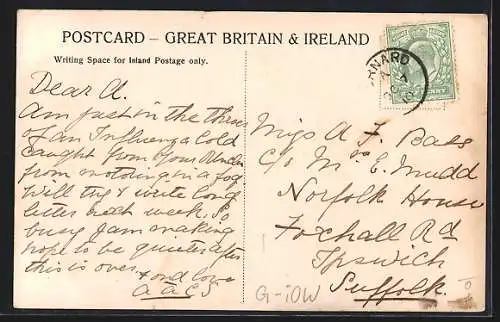 POSTCARD – GREAT BRITAIN & IRELAND
Writing Space for Inland Postage only.
Dear A.
Am just in the throes
of an Influenza Cold
caught from your
from motoring in a fog.
Will try & write long
letter next week, So
busy Jam making
hope to be quieter after
this is over.
Fond love
Miss A F. Baes
C/o Mrs E. Mudd
Norfolk House
Foxhall Rd
Ipswich
Suffolk.
G-IOW